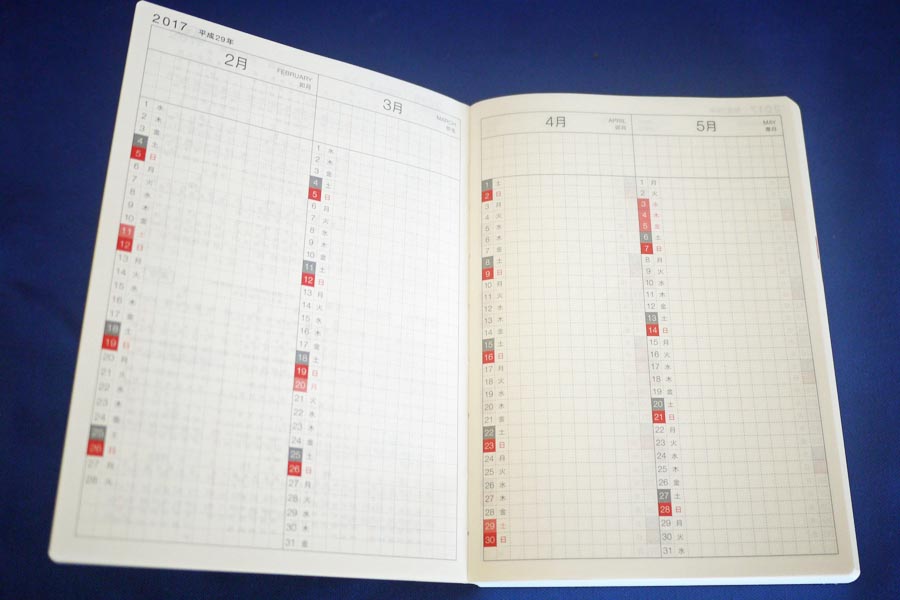 2017 平成29年
2月 FEBRUARY 如月
1 水
2 木
3 金
4 土
5 日
6 月
7 火
8 水
9 木
10 金
11 土
12 日
13 月
14 火
15 水
16 木
17 金
18 土
19 日
20 月
21 火
22 水
23 木
24 金
25 土
26 日
27 月
28 火
3月 MARCH 弥生
1 水
2 木
3 金
4 土
5 日
6 月
7 火
8 水
9 木
10 金
11 土
12 日
13 月
14 火
15 水
16 木
17 金
18 土
19 日
20 月
21 火
22 水
23 木
24 金
25 土
26 日
27 月
28 火
29 水
30 木
31 金
4月 APRIL 卯月
1 土
2 日
3 月
4 火
5 水
6 木
7 金
8 土
9 日
10 月
11 火
12 水
13 木
14 金
15 土
16 日
17 月
18 火
19 水
20 木
21 金
22 土
23 日
24 月
25 火
26 水
27 木
28 金
29 土
30 日
5月 MAY 皐月
1 月
2 火
3 水
4 木
5 金
6 土
7 日
8 月
9 火
10 水
11 木
12 金
13 土
14 日
15 月
16 火
17 水
18 木
19 金
20 土
21 日
22 月
23 火
24 水
25 木
26 金
27 土
28 日
29 月
30 火
31 水